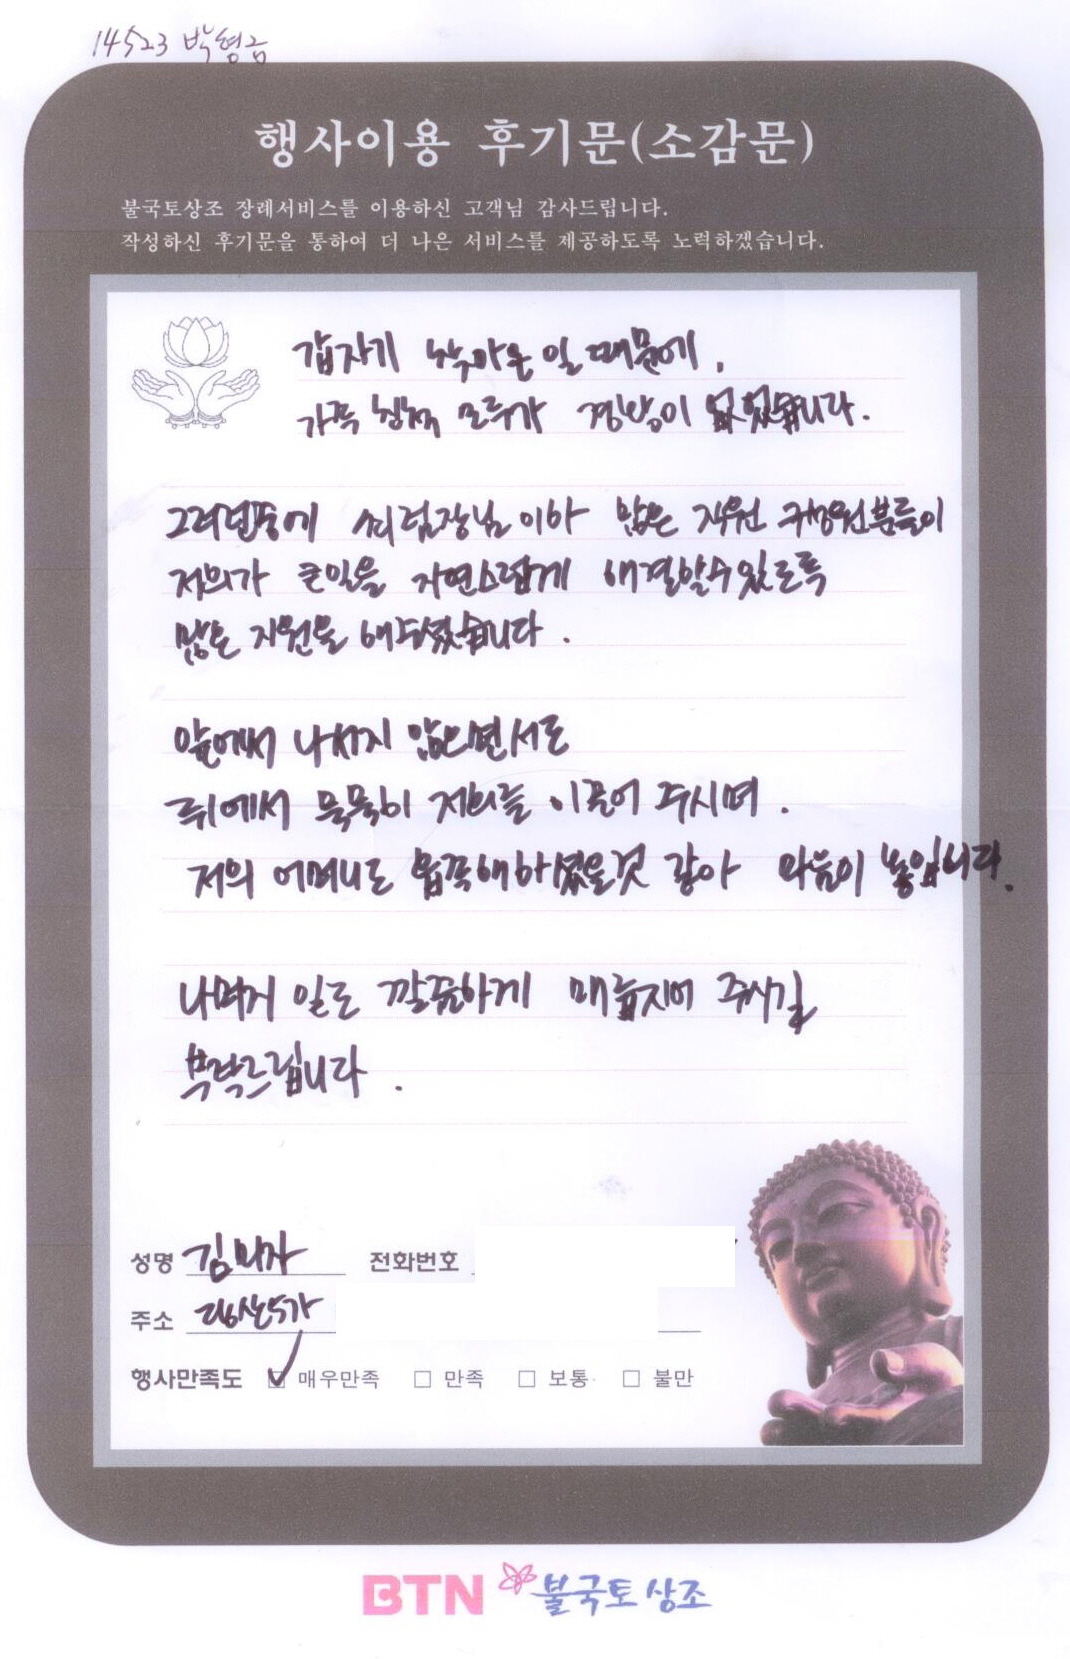 14523 박형금
행사이용 후기문(소감문)
불국토상조 장례서비스를 이용하신 고객님 감사드립니다.
작성하신 후기문을 통하여 더 나은 서비스를 제공하도록 노력하겠습니다.
갑자기 찾아온 일 때문에,
가족 친척 모두가 경황이 없었습니다.
그러던중에 팀장님 이하 많은 직원 분들이
저희가 큰일을 자연스럽게 해결할수있도록
많은 지원을 해주셨습니다.
앞에서 나서지 않으면서도
뒤에서 묵묵히 저희를 이끌어 주시며.
저희 어머니도 흡족해하셨을것 같아 마음이 놓입니다.
나머지 일도 깔끔하게 매듭지어 주시길
부탁드립니다.
성명 김미자 전화번호
주소
행사만족도 ☑ 매우만족 □ 만족 □ 보통 □ 불만
BTN 불국토상조